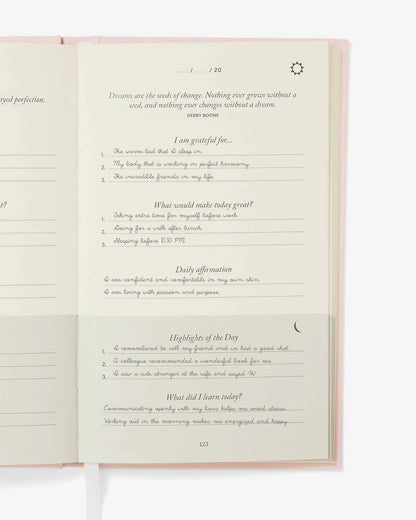 ayed perfection.
t?
/ / 20
Dreams are the seeds of change. Nothing ever grows without a
seed, and nothing ever changes without a dream.
DEBBY BOONE
I am grateful for...
1. The warm bed that I sleep in.
2. My body that is working in perfect harmony.
3. The incredible friends in my life.
What would make today great?
1. Taking extra time for myself before work.
2. Going for a walk after lunch.
3. Sleeping before 10:30 PM.
Daily affirmation
I am confident and comfortable in my own skin.
I am living with passion and purpose.
Highlights of the Day
1. I remembered to call my friend and we had a good chat.
2. A colleague recommended a wonderful book for me.
3. I saw a cute stranger at the cafe and sayed "Hi".
What did I learn today?
Communicating openly with my boss helps me avoid stress.
Working out in the morning makes me energized and happy.
125